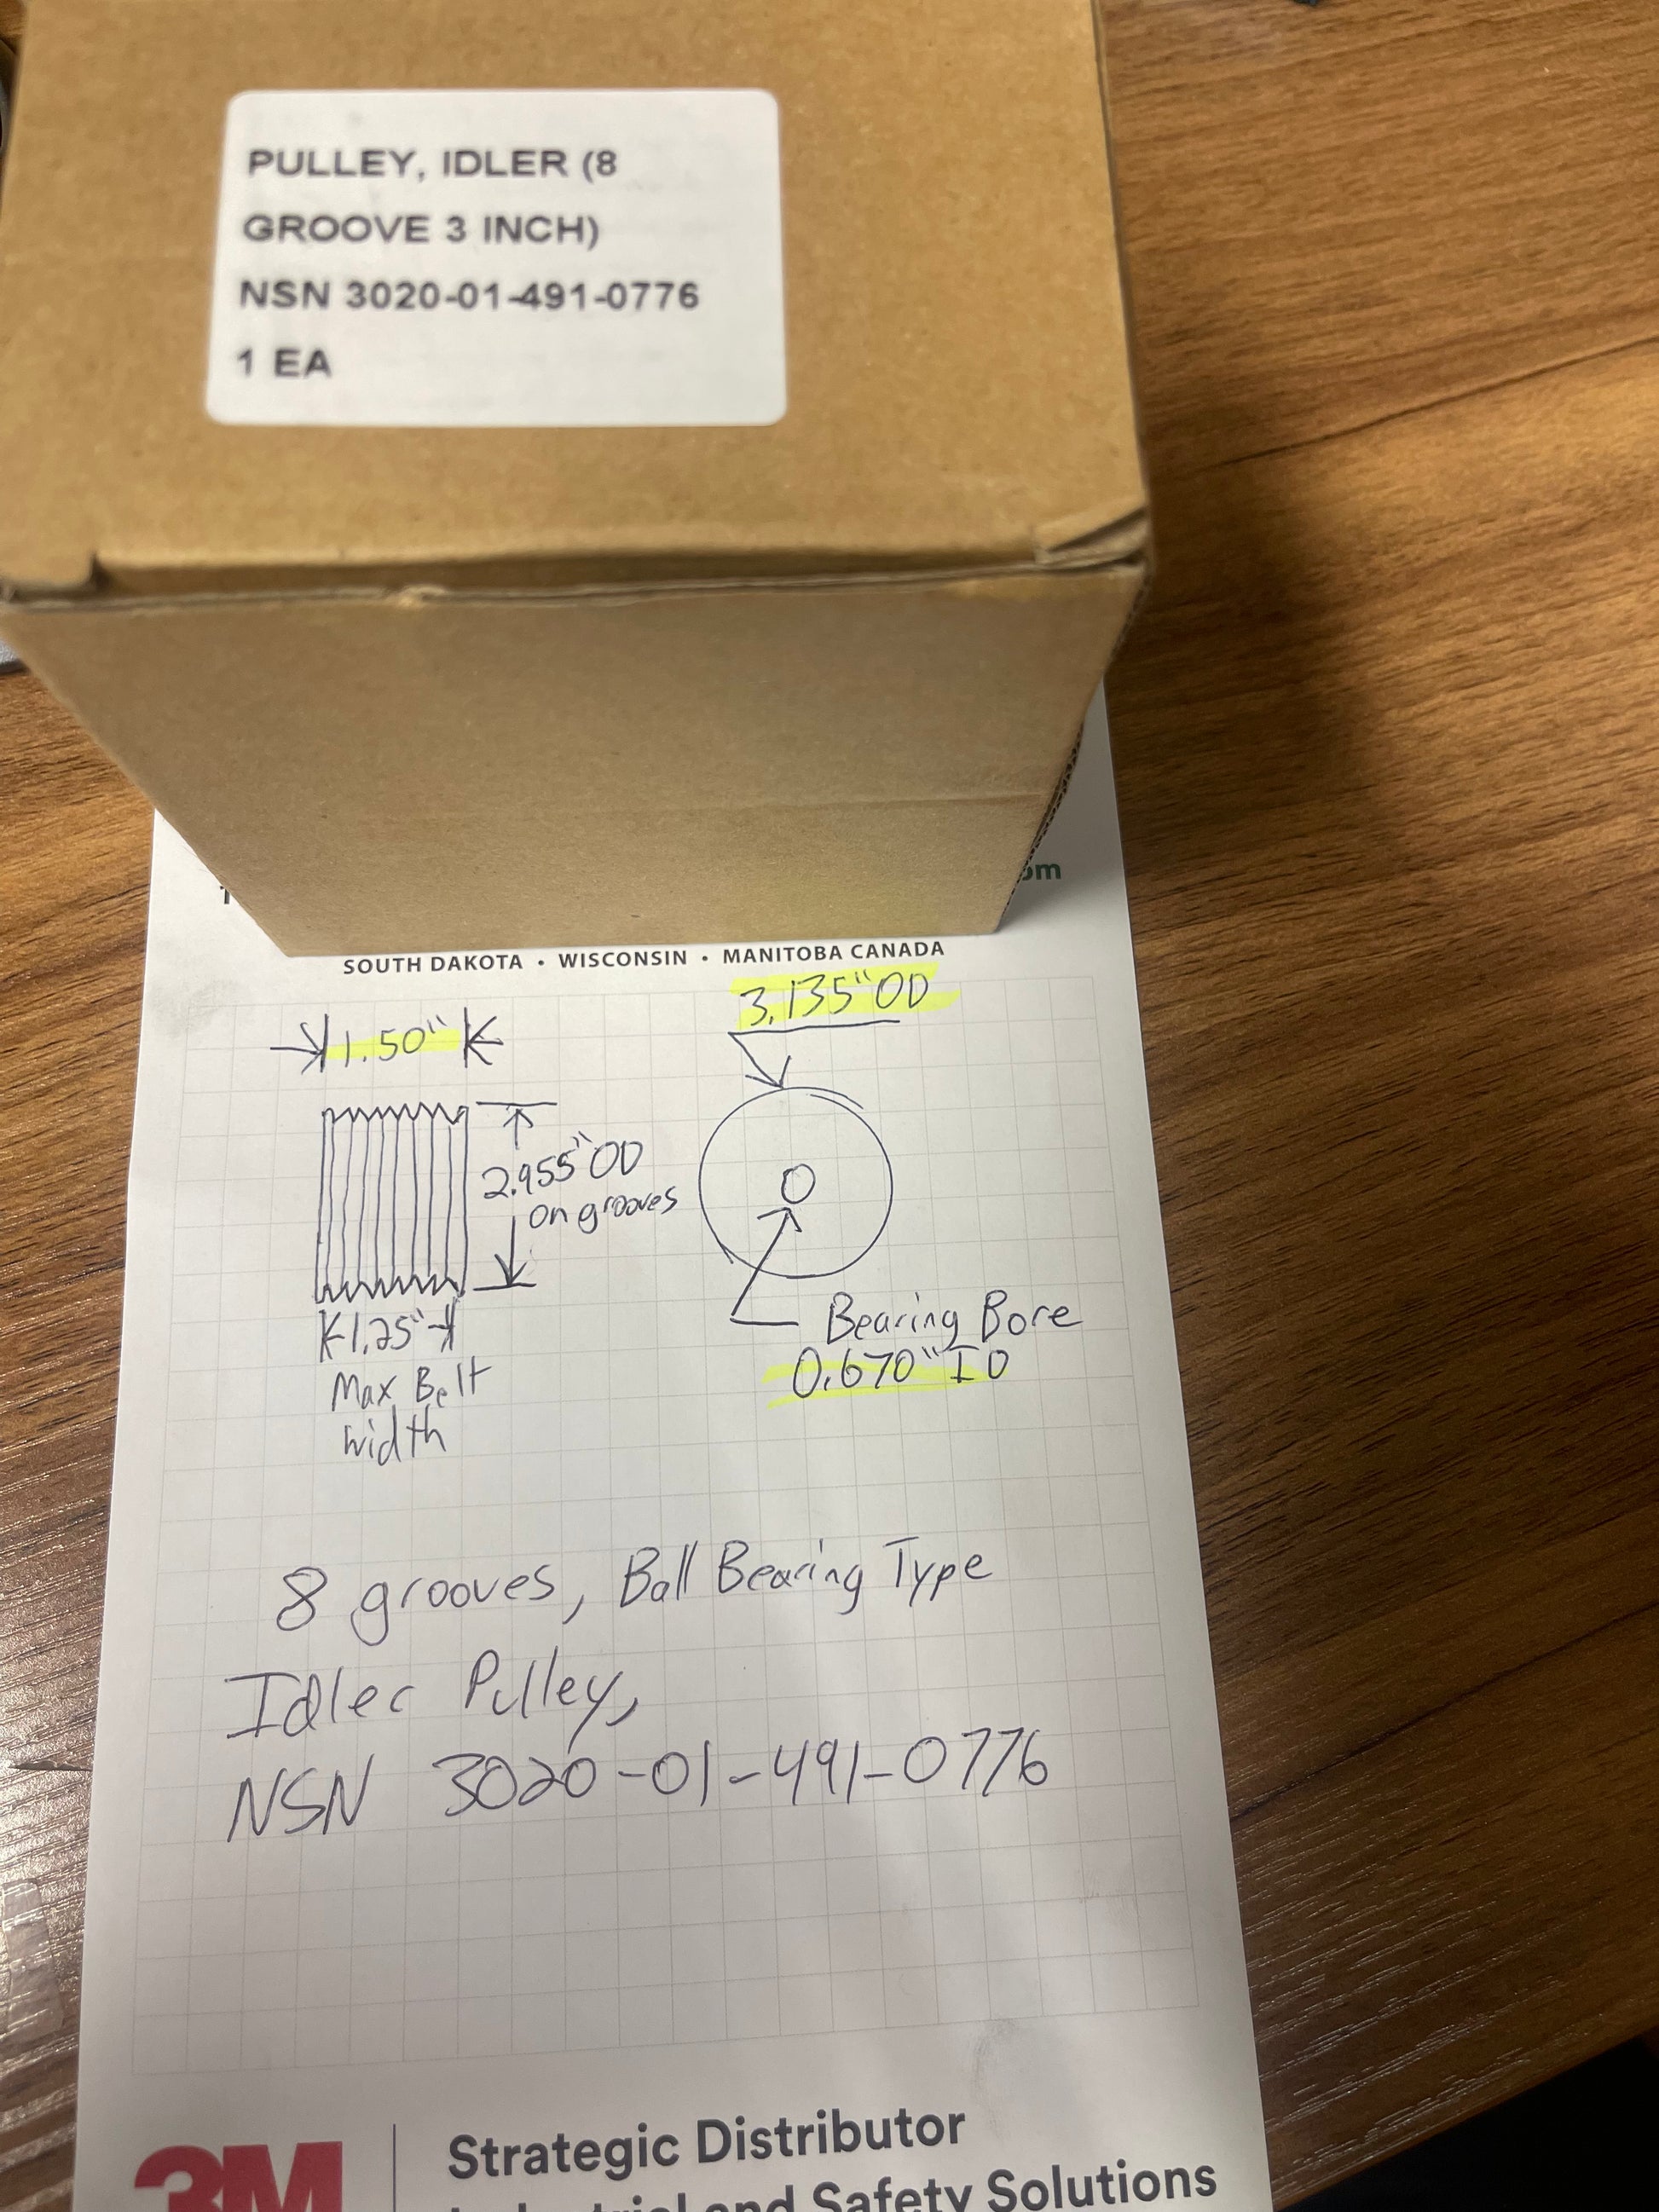 PULLEY, IDLER (8
GROOVE 3 INCH)
NSN 3020-01-491-0776
1 EA
SOUTH DAKOTA • WISCONSIN • MANITOBA CANADA
1.50"
3.135" OD
2.955" OD
on grooves
1.25"
Max Belt
width
Bearing Bore
0.670" ID
8 grooves, Ball Bearing Type
Idler Pulley,
NSN 3020-01-491-0776
3M
Strategic Distributor
and Safety Solutions